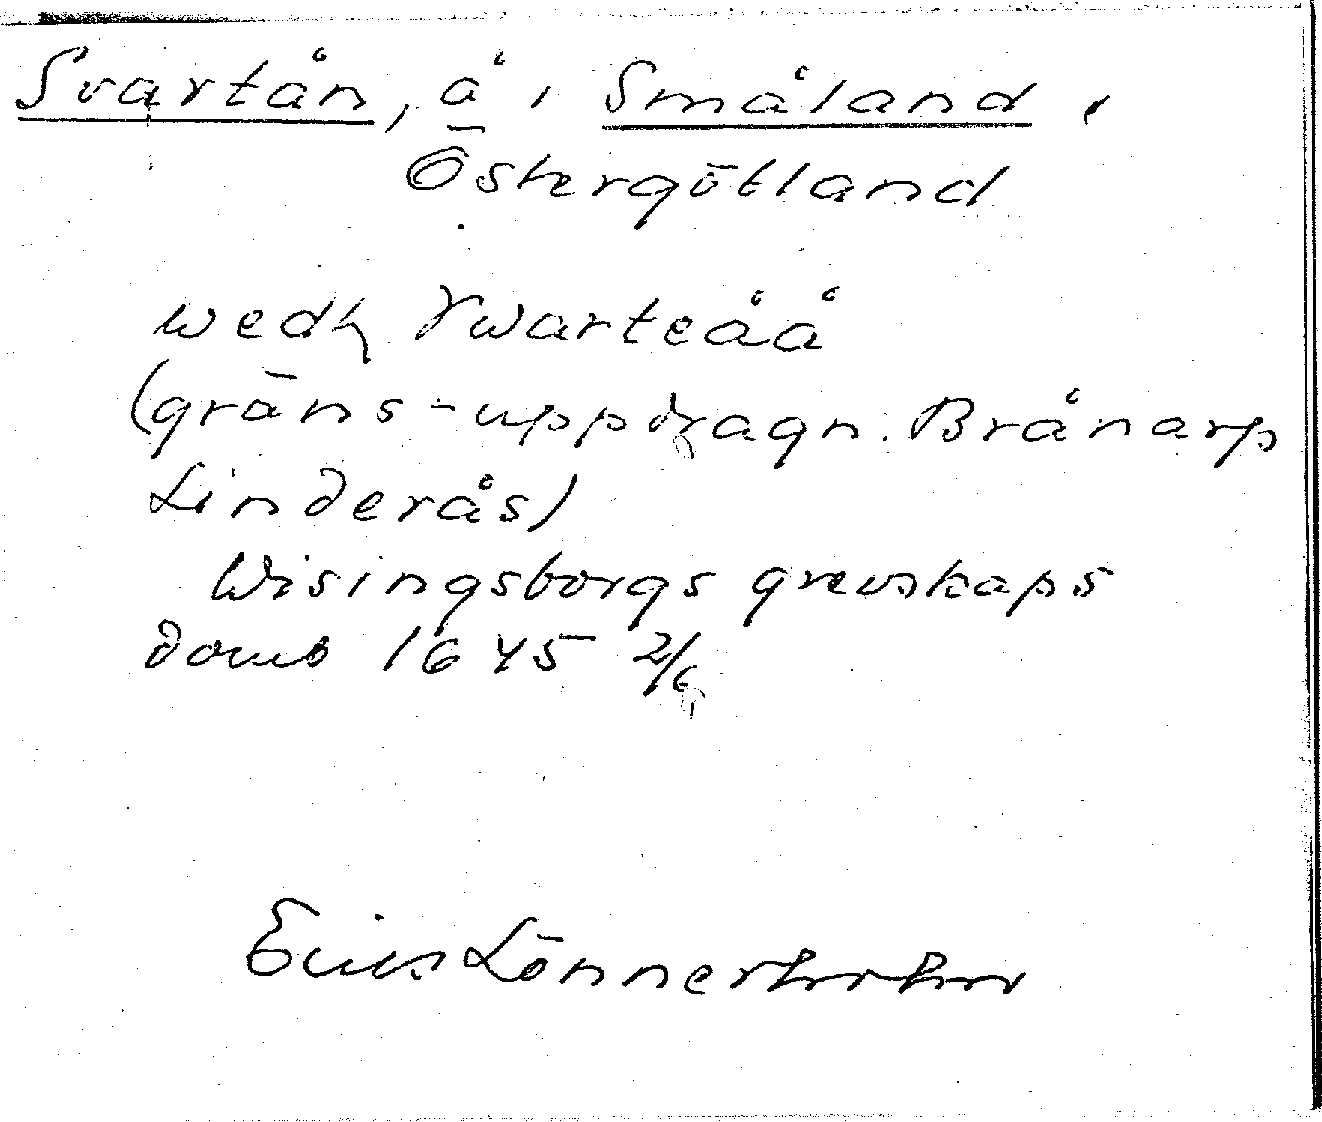 Svartån, å i Småland,
Östergötland
wedh Swarteåå
(gräns-uppdragn. Brånarp
Linderås)
Wisingsborgs grevskaps
domb 1645 2/6